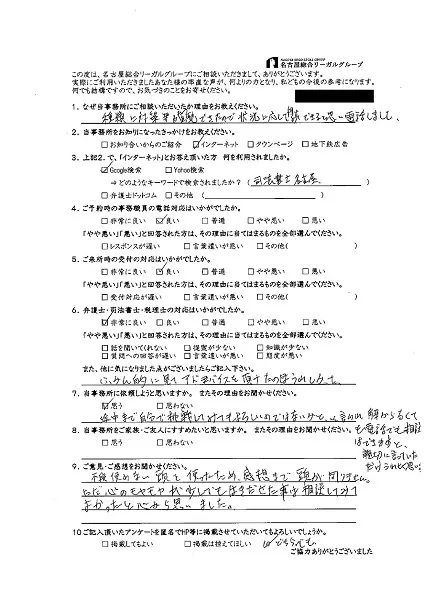 NAGOYA SOGO LEGAL GROUP
名古屋総合リーガルグループ
この度は、名古屋総合リーガルグループにご相談いただきまして、ありがとうございます。
実際にご利用いただきましたあなた様の率直な声が、何よりの力となり、私どもの今後の参考になります。
何でも結構ですので、お気づきのことをお寄せください。
1. なぜ当事務所にご相談いただいたか理由をお教えください。
状況に応じて相談できると思い電話しました。
2. 当事務所をお知りになったきっかけをお教えください。
□お知り合いからのご紹介 ☑インターネット □タウンページ □地下鉄広告
3. 上記2.で、「インターネット」とお答え頂いた方 何を利用されましたか。
☑Google検索 □Yahoo検索
⇒どのようなキーワードで検索されましたか？（司法書士 名古屋）
□弁護士ドットコム □その他（ ）
4. ご予約時の事務職員の電話対応はいかがでしたか。
□非常に良い ☑良い □普通 □やや悪い □悪い
「やや悪い」「悪い」と回答された方は、その理由に当てはまるものを全部選んでください。
□レスポンスが遅い □言葉遣いが悪い □その他( )
5. ご来所時の受付の対応はいかがでしたか。
□非常に良い □良い □普通 □やや悪い □悪い
「やや悪い」「悪い」と回答された方は、その理由に当てはまるものを全部選んでください。
□受付対応が遅い □言葉遣いが悪い □その他( )
6. 弁護士・司法書士・税理士の対応はいかがでしたか。
☑非常に良い □良い □普通 □やや悪い □悪い
「やや悪い」「悪い」と回答された方は、その理由に当てはまるものを全部選んでください。
□話を聞いてくれない □提案が少ない □知識が少ない
□質問への回答が遅い □言葉遣いが悪い □態度が悪い
また、他に気になりました点がございましたらご記入下さい。
アドバイスを頂けたの
7. 当事務所に依頼しようと思いますか。 またその理由をお聞かせください。
☑思う □思わない
途中まで自分で挑戦してみてもよろしいのではないかと、言われ
8. 当事務所をご家族・ご友人にすすめたいと思いますか。 またその理由をお聞かせください。
□思う □思わない
も電話でも相談
はできますと、
親切に言っていた
9. ご意見・ご感想をお聞かせください。
ため、感想まで頭が回りません。
ただ心のモヤモヤが少しでも
よかったと心から思いました。
10 ご記入頂いたアンケートを匿名でHP等に掲載させていただいてもよろしいでしょうか。
□掲載してもよい □掲載は控えてほしい どちらでも
ご協力ありがとうございました